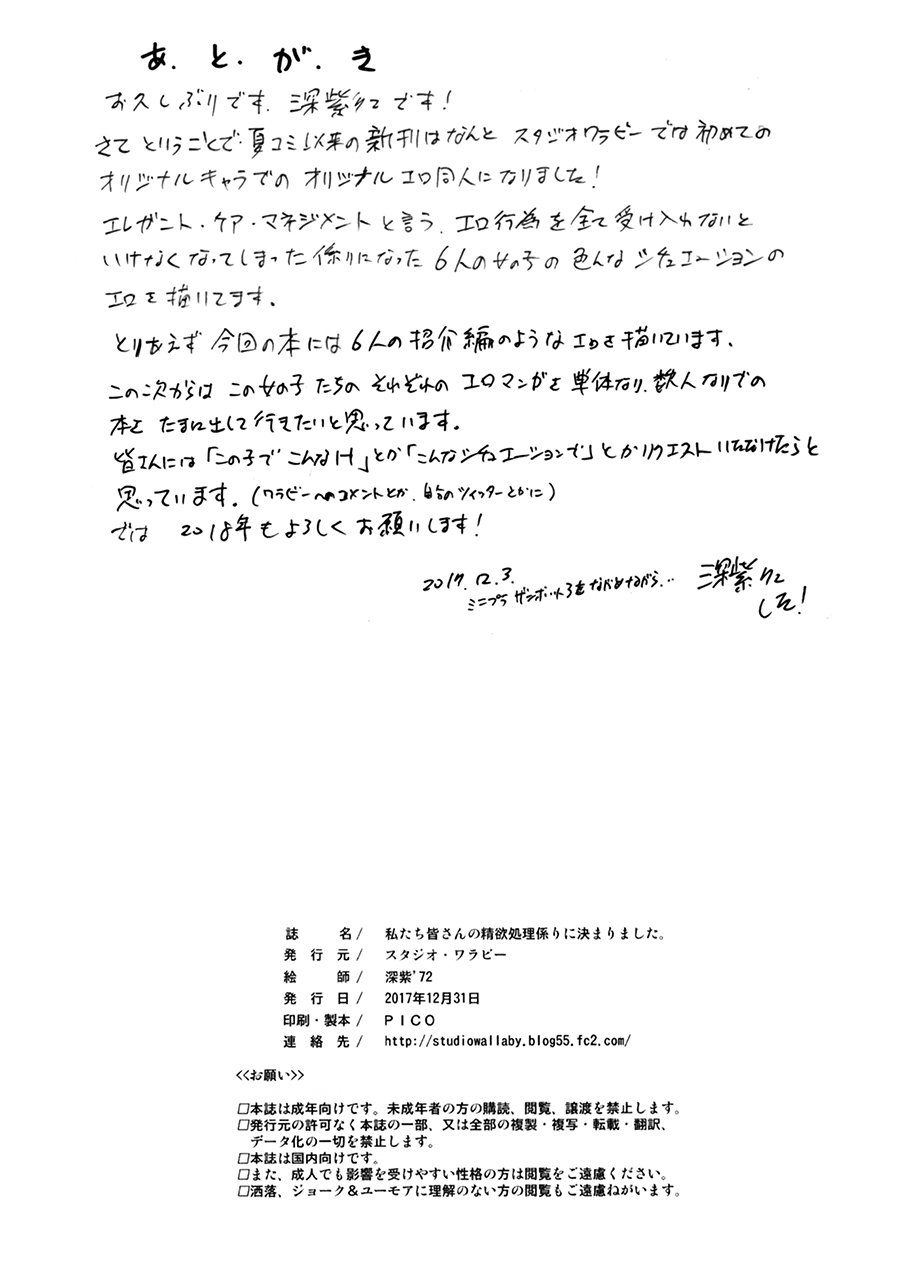 あ.と.が.き
お久しぶりです.深紫'72です!
さて ということで.夏コミ以来の新刊はなんと スタジオワラビーでは初めての
オリジナルキャラでの オリジナルエロ同人になりました!
エレガント・ケア・マネジメント と言う.エロ行為を全て受け入れないと
いけなくなってしまった係りになった 6人の女の子の 色んなシチュエーションの
エロを描いてます.
とりあえず 今回の本には 6人の紹介編のような エロを描いています.
この次からは この女の子たちの それぞれの エロマンガを 単体なり.数人なりでの
本を たまに出して行きたいと思っています.
皆さんには「この子で こんなH」とか「こんなシチュエーションで」とかリクエスト いただけたらと
思っています.(ワラビーへのコメントとか.自分のツイッターとかに)
では 2018年もよろしくお願いします!
2017.12.3.
ミニプラ ザンボット3をながめながら...
深紫'72
した!
誌 名/ 私たち皆さんの精欲処理係りに決まりました。
発 行 元/ スタジオ・ワラビー
絵 師/ 深紫'72
発 行 日/ 2017年12月31日
印刷・製本/ PICO
連 絡 先/ http://studiowallaby.blog55.fc2.com/
<<お願い>>
□本誌は成年向けです。未成年者の方の購読、閲覧、譲渡を禁止します。
□発行元の許可なく本誌の一部、又は全部の複製・複写・転載・翻訳、
データ化の一切を禁止します。
□本誌は国内向けです。
□また、成人でも影響を受けやすい性格の方は閲覧をご遠慮ください。
□洒落、ジョーク&ユーモアに理解のない方の閲覧もご遠慮ねがいます。